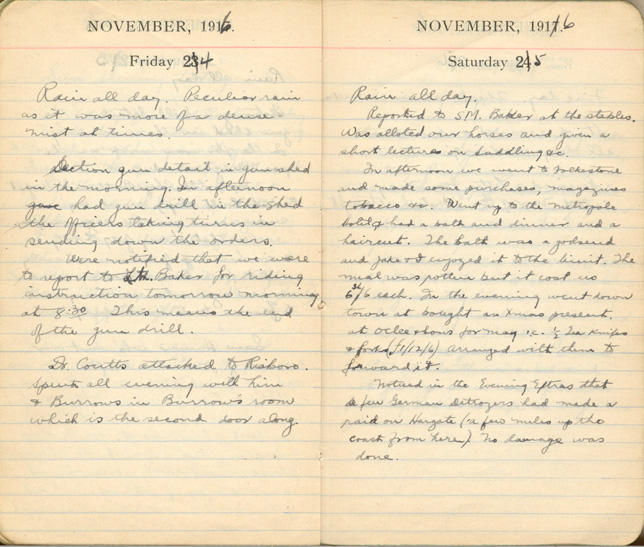 NOVEMBER, 1916.
Friday 24
Rain all day. Peculiar rain
as it was more of a dense
mist at times.
Section gun detail in gun shed
in the morning. In afternoon
had gun drill in the shed
the officers taking turns in
sending down the orders.
Were notified that we were
to report to S.M. Baker for riding
instruction tomorrow morning
at 8:30 This means the end
of the gun drill.
Lt. Coutts attached to Risboro.
Spent all evening with him
& Burrows in Burrow's room
which is the second door along.
NOVEMBER, 1916
Saturday 25
Rain all day.
Reported to S.M. Baker at the stables.
Was alloted our horses and given a
short lecture on saddling &c.
In afternoon we went to Folkestone
and made some purchases, magazines
tobacco &c. Went up to the Metropole
hotel & had a bath and dinner and a
haircut. The bath was a godsend
and Jake & I enjoyed it to the limit. The
meal was rotten but it cost us
6/6 each. In the evening went down
town at bought an Xmas present.
at for Mag i.e. ½ Tea Knifes
& forks (£1/12/6) arranged with them to
forward it.
Noticed in the Evening Extras that
a few German Ditroyers had made a
raid on Margate (a few miles up the
coast from here) No damage was
done.